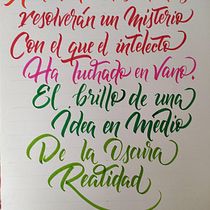 resolverán un Misterio
Con el que el intelecto
Ha luchado en vano.
El brillo de una
Idea en Medio
De la Oscura
Realidad